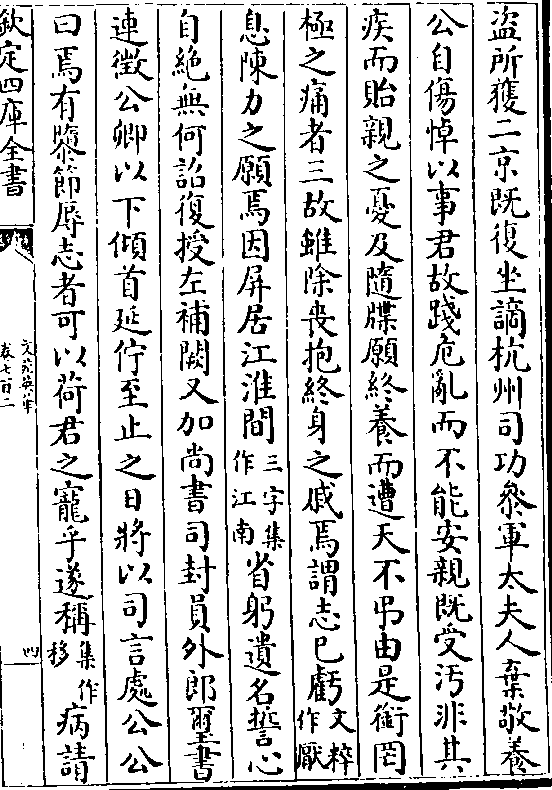 盜所獲二京既復坐謫杭州司功參軍太夫人棄敬養
公自傷悼以事君故踐危亂而不能安親既受汚非其
疾而貽親之憂及隨牒願終養而遭天不弔由是銜罔
極之痛者三故雖除喪抱終身之戚焉謂志已虧文粹作厭
息陳力之願焉因屏居江淮間三字集作江南省躬遺名誓心
自絶無何詔復授左補闕又加尚書司封員外郎璽書
連徵公卿以下傾首延佇至止之日將以司言處公公
曰焉有隳節辱志者可以荷君之寵乎遂稱集作移病請
欽定四庫全書
文苑英華
卷七百二
四